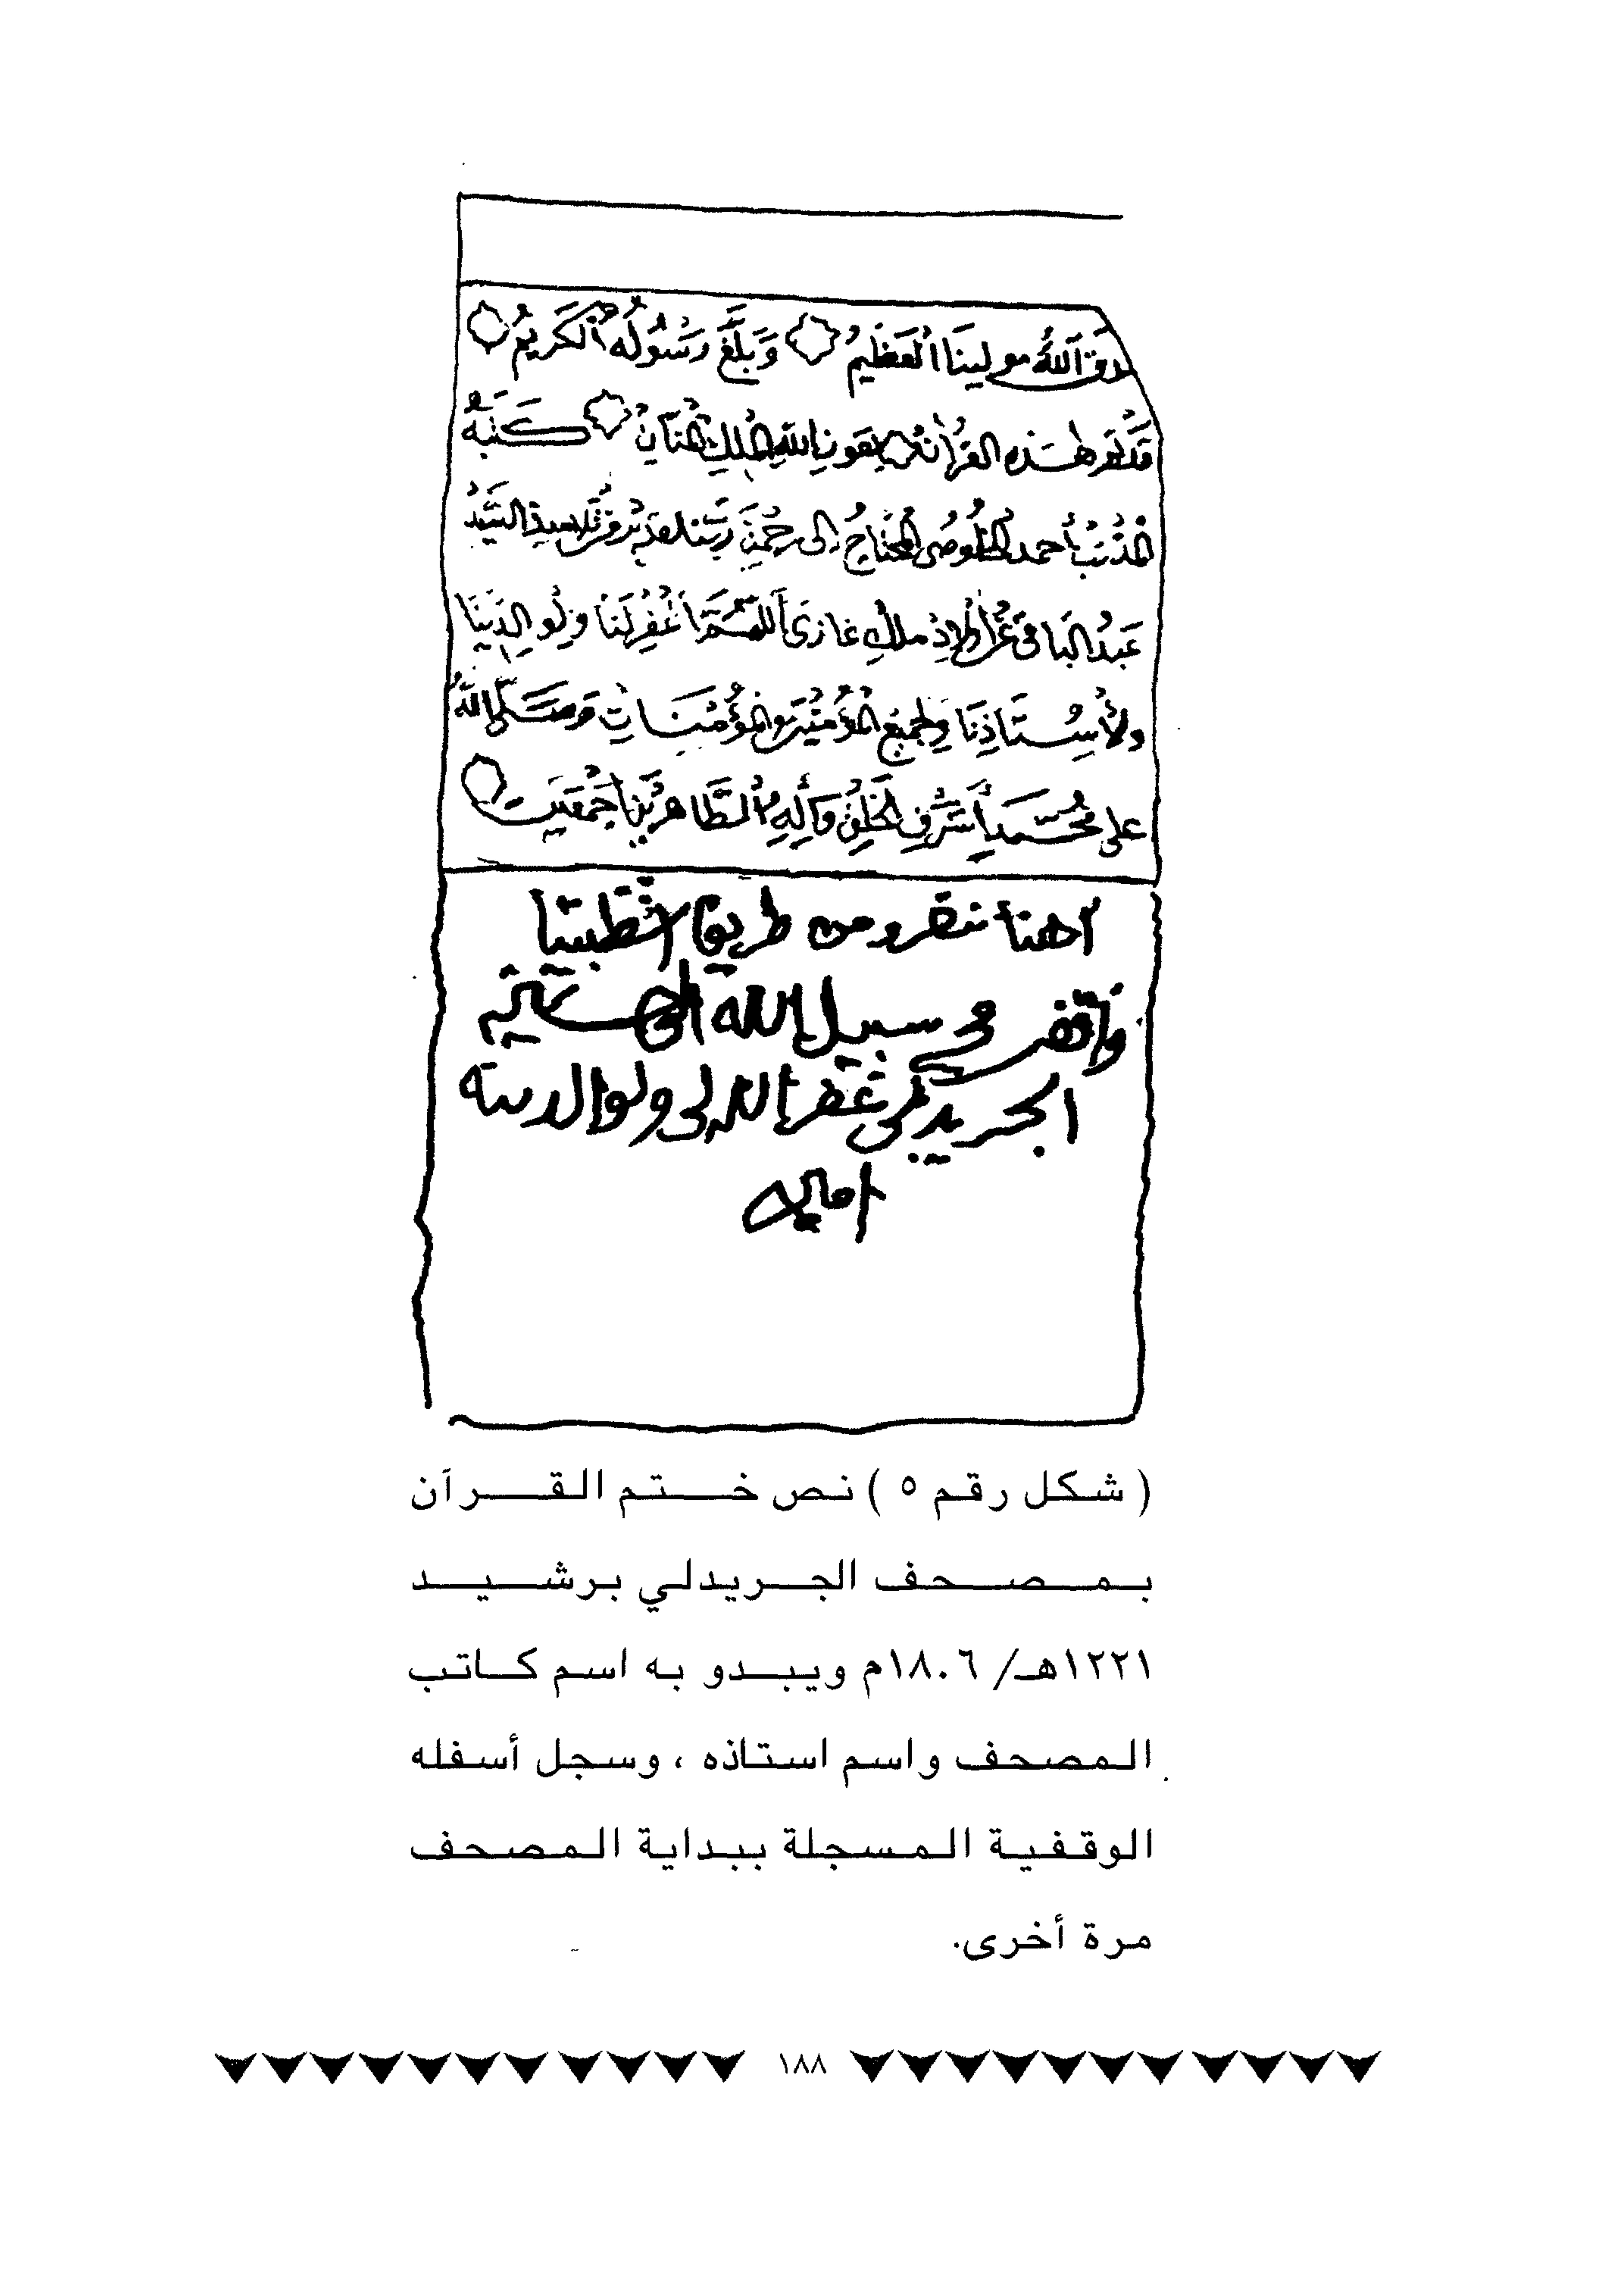 دق الله مولينا العظيم وبلغ رسوله الكريم
قد هذه القرآن بعون الله الملك المنان كتبه
المذنب أحمد المحتاج إلى تلميذ السيد
عبد الباقي ملك غازي اللهم اغفر لنا ولوالدينا
ولأستاذنا ولجميع المؤمنين والمؤمنات وصلى الله
على محمد أشرف الخلق وآله الطاهرين أجمعين
من طريق
سبيل الله الحج
الجريدلي غفر الله لي ولوالديه
امين
( شكل رقم ٥ ) نص ختم القرآن
بمصحف الجريدلي برشيد
١٢٢١هـ/ ١٨٠٦م ويبدو به اسم كاتب
المصحف واسم استاذه ، وسجل أسفله
الوقفية المسجلة ببداية المصحف
مرة أخرى.
١٨٨